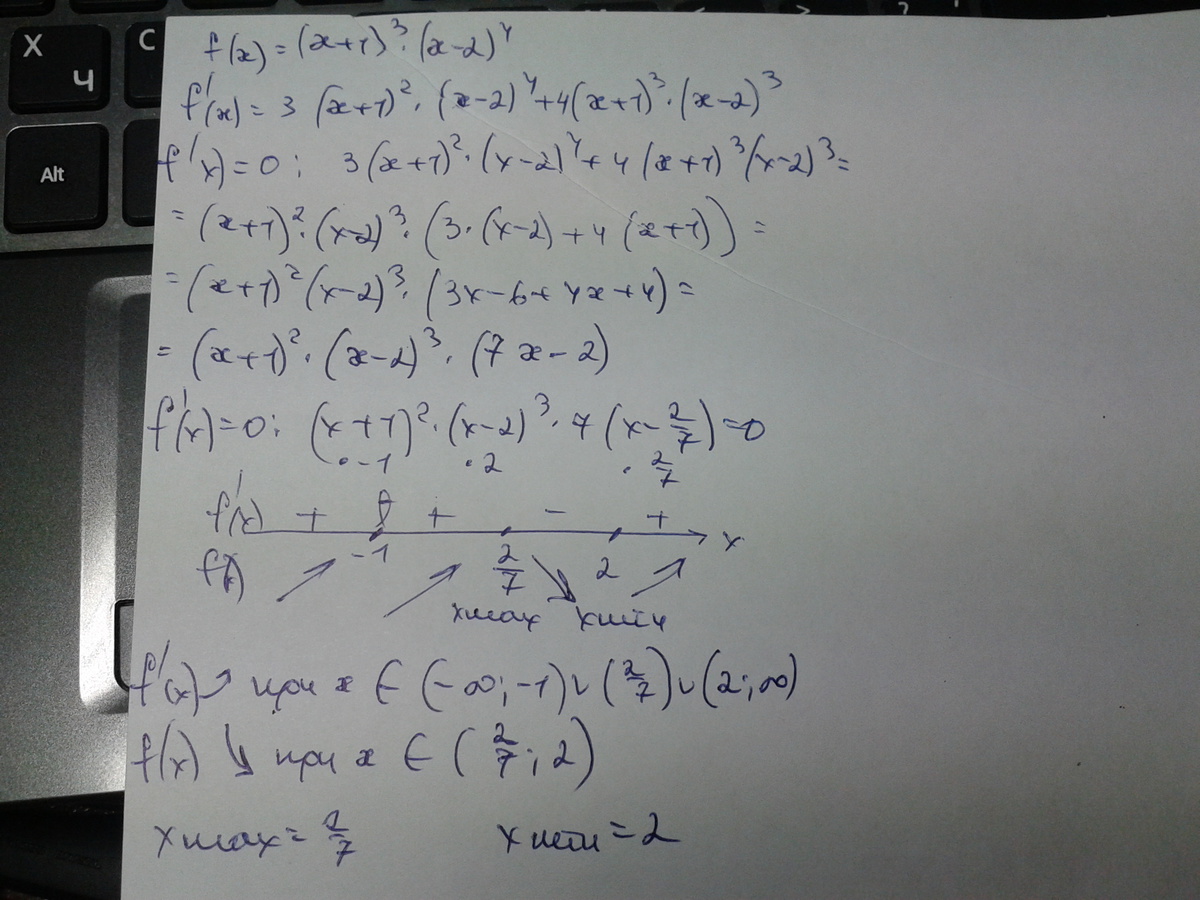 X
Ч
C
Alt
f(x) = (x+1)³·(x-2)⁴
f'(x) = 3 (x+1)²·(x-2)⁴+4(x+1)³·(x-2)³
f'(x)=0; 3(x+1)²·(x-2)⁴+4(x+1)³(x-2)³=
= (x+1)²·(x-2)³·(3·(x-2)+4(x+1)) =
= (x+1)²(x-2)³·(3x-6+4x+4) =
= (x+1)²·(x-2)³·(7x-2)
f'(x)=0; (x+1)²·(x-2)³·7(x-2/7)=0
·-1 ·2 · 2/7
f'(x) + + - +
-1 2/7 2 x
f(x)
xmax xmin
f'(x) ↗ при x ∈ (-∞;-1)∪(2/7)∪(2;∞)
f(x) ↘ при x ∈ (2/7;2)
xmax = 2/7 xmin = 2